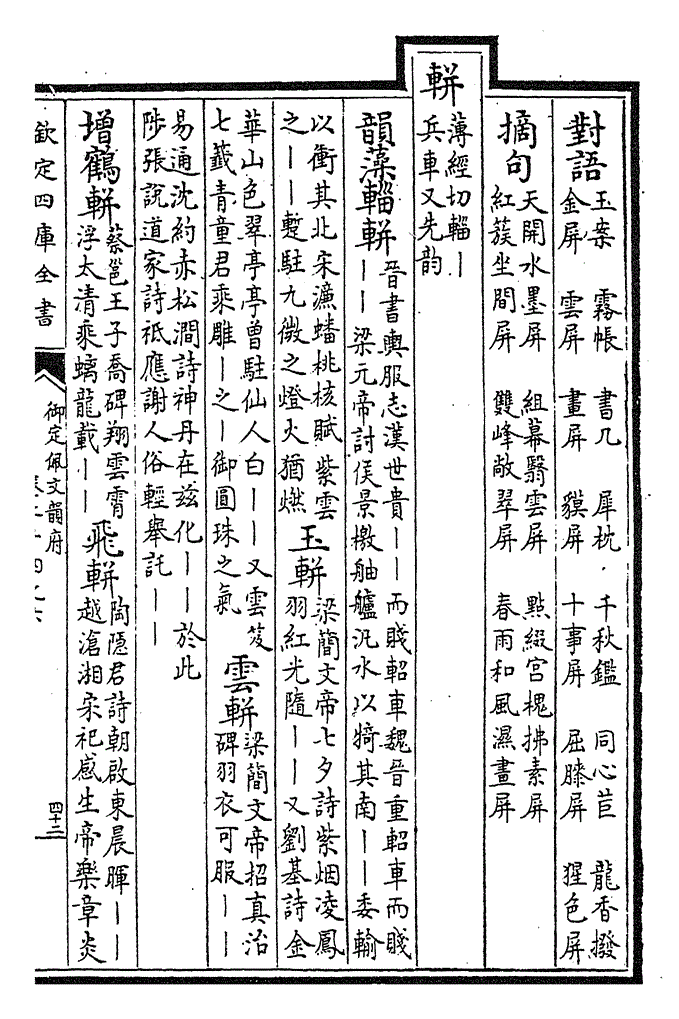 對語
玉案　霧帳　書几　犀枕　千秋鑑　同心苣　龍香撥
金屏　雲屏　畫屏　貘屏　十事屏　屈膝屏　猩色屏
摘句
天開水墨屏　組幕翳雲屏　點綴宮槐拂素屏
紅蔟坐間屏　雙峰敞翠屏　春雨和風濕畫屏
軿
薄經切輜丨
兵車又先韵
韻藻輜軿
晉書輿服志漢世貴丨丨而賤軺車魏晉重軺車而賤
丨丨梁元帝討侯景檄舳艫汎水以掎其南丨丨委輸
以衝其北宋濂蟠桃核賦紫雲
之丨丨蹔駐九微之燈火猶燃
玉軿
梁簡文帝七夕詩紫烟凌鳳
羽紅光隨丨丨又劉基詩金
華山色翠亭亭曾駐仙人白丨丨又雲笈
七籤青童君乘雕丨之丨御圓珠之氣
雲軿
梁簡文帝招真治
碑羽衣可服丨丨
易通沈約赤松澗詩神丹在兹化丨丨於此
陟張說道家詩祗應謝人俗輕舉託丨丨
增鶴軿
蔡邕王子喬碑翔雲霄
浮太清乘螭龍載丨丨
飛軿
陶隱君詩朝啟東晨暉丨丨
越滄湘宋祀感生帝樂章炎
欽定四庫全書
御定佩文韻府
四十三